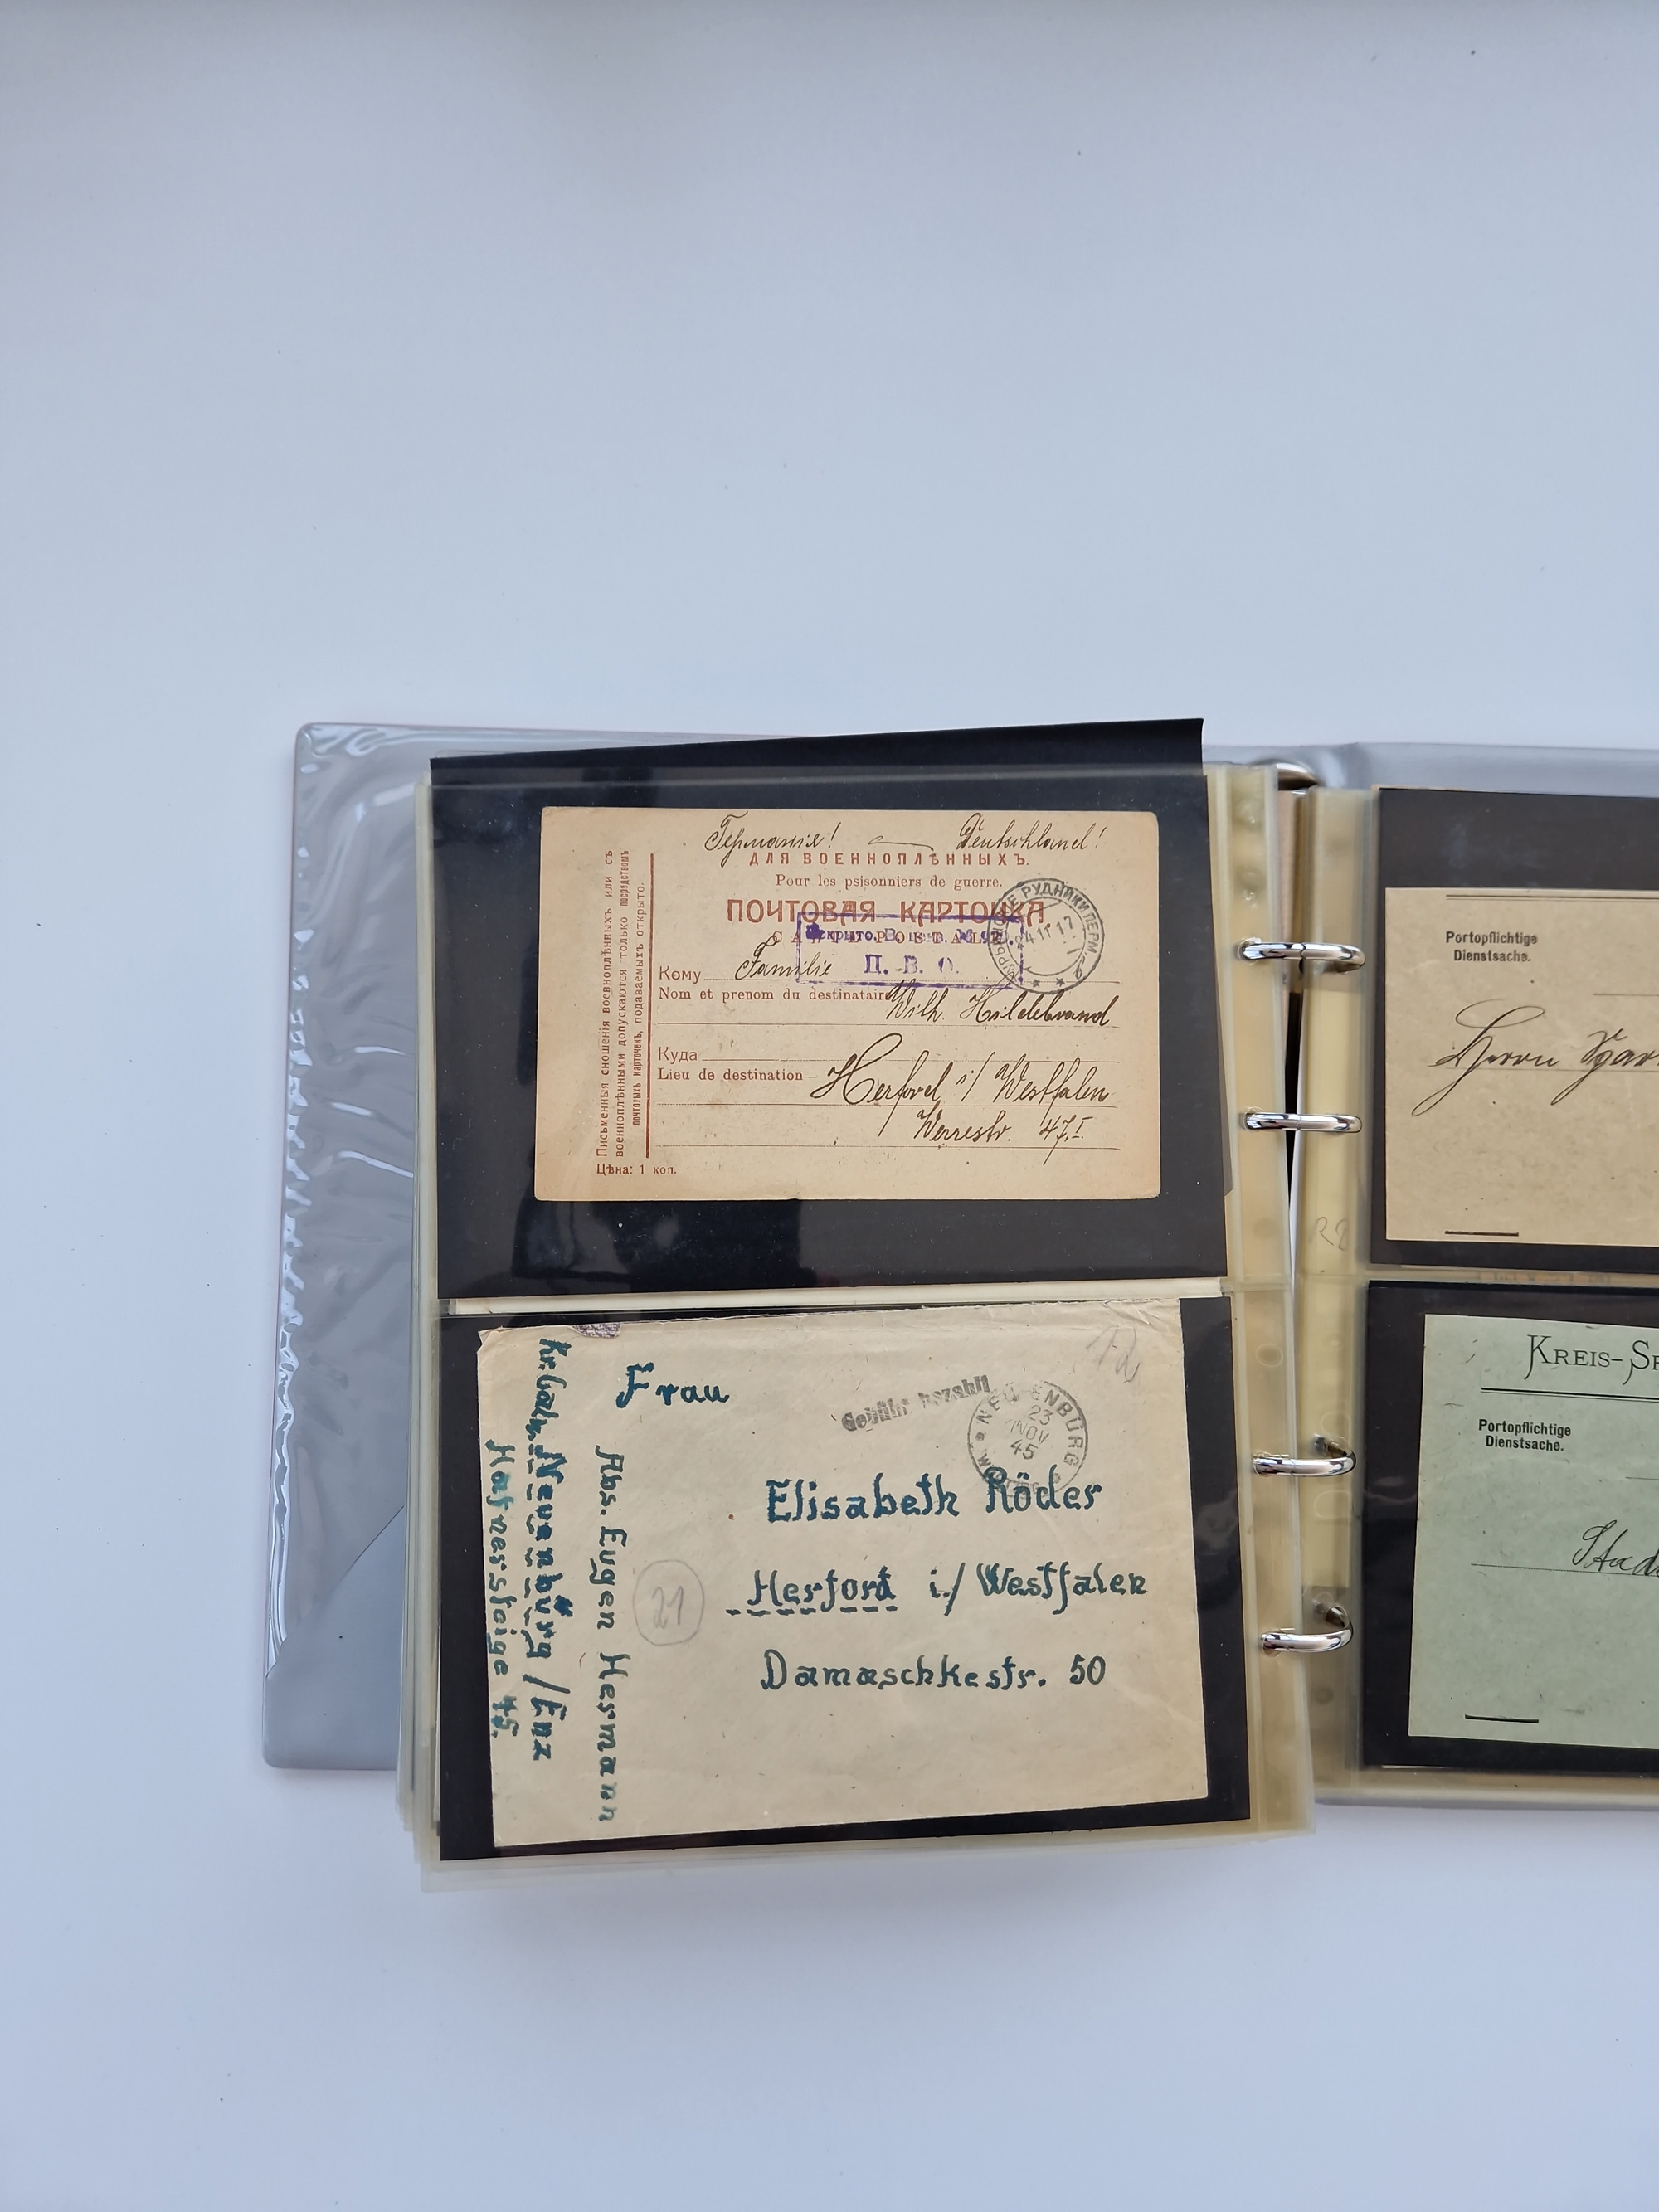 Германия! — Deutschland!
ДЛЯ ВОЕННОПЛѢННЫХЪ.
Pour les psisonniers de guerre.
ПОЧТОВАЯ КАРТОЧКА
CARTE POSTALE
П. В. О.
РУДНИКИ ПЕРМ.
24 11 17
Кому Familie
Nom et prenom du destinataire
Wilh. Hildebrand
Куда
Lieu de destination Herford i/ Westfalen
Werrestr. 47 I.
Письменныя сношенія военноплѣнныхъ или съ
военноплѣнными допускаются только посредствомъ
почтовыхъ карточекъ, подаваемыхъ открыто.
Цѣна: 1 коп.
12
Frau
Gebühr bezahlt
NEUENBÜRG
23
NOV
45
Elisabeth Röder
Herford i./ Westfalen
Damaschkestr. 50
21
Abs. Eugen Hermann
Kr. Calw. Neuenbürg / Enz
Hafnersteige 45.
Portopflichtige
Dienstsache.
Herrn
KREIS-
Portopflichtige
Dienstsache.